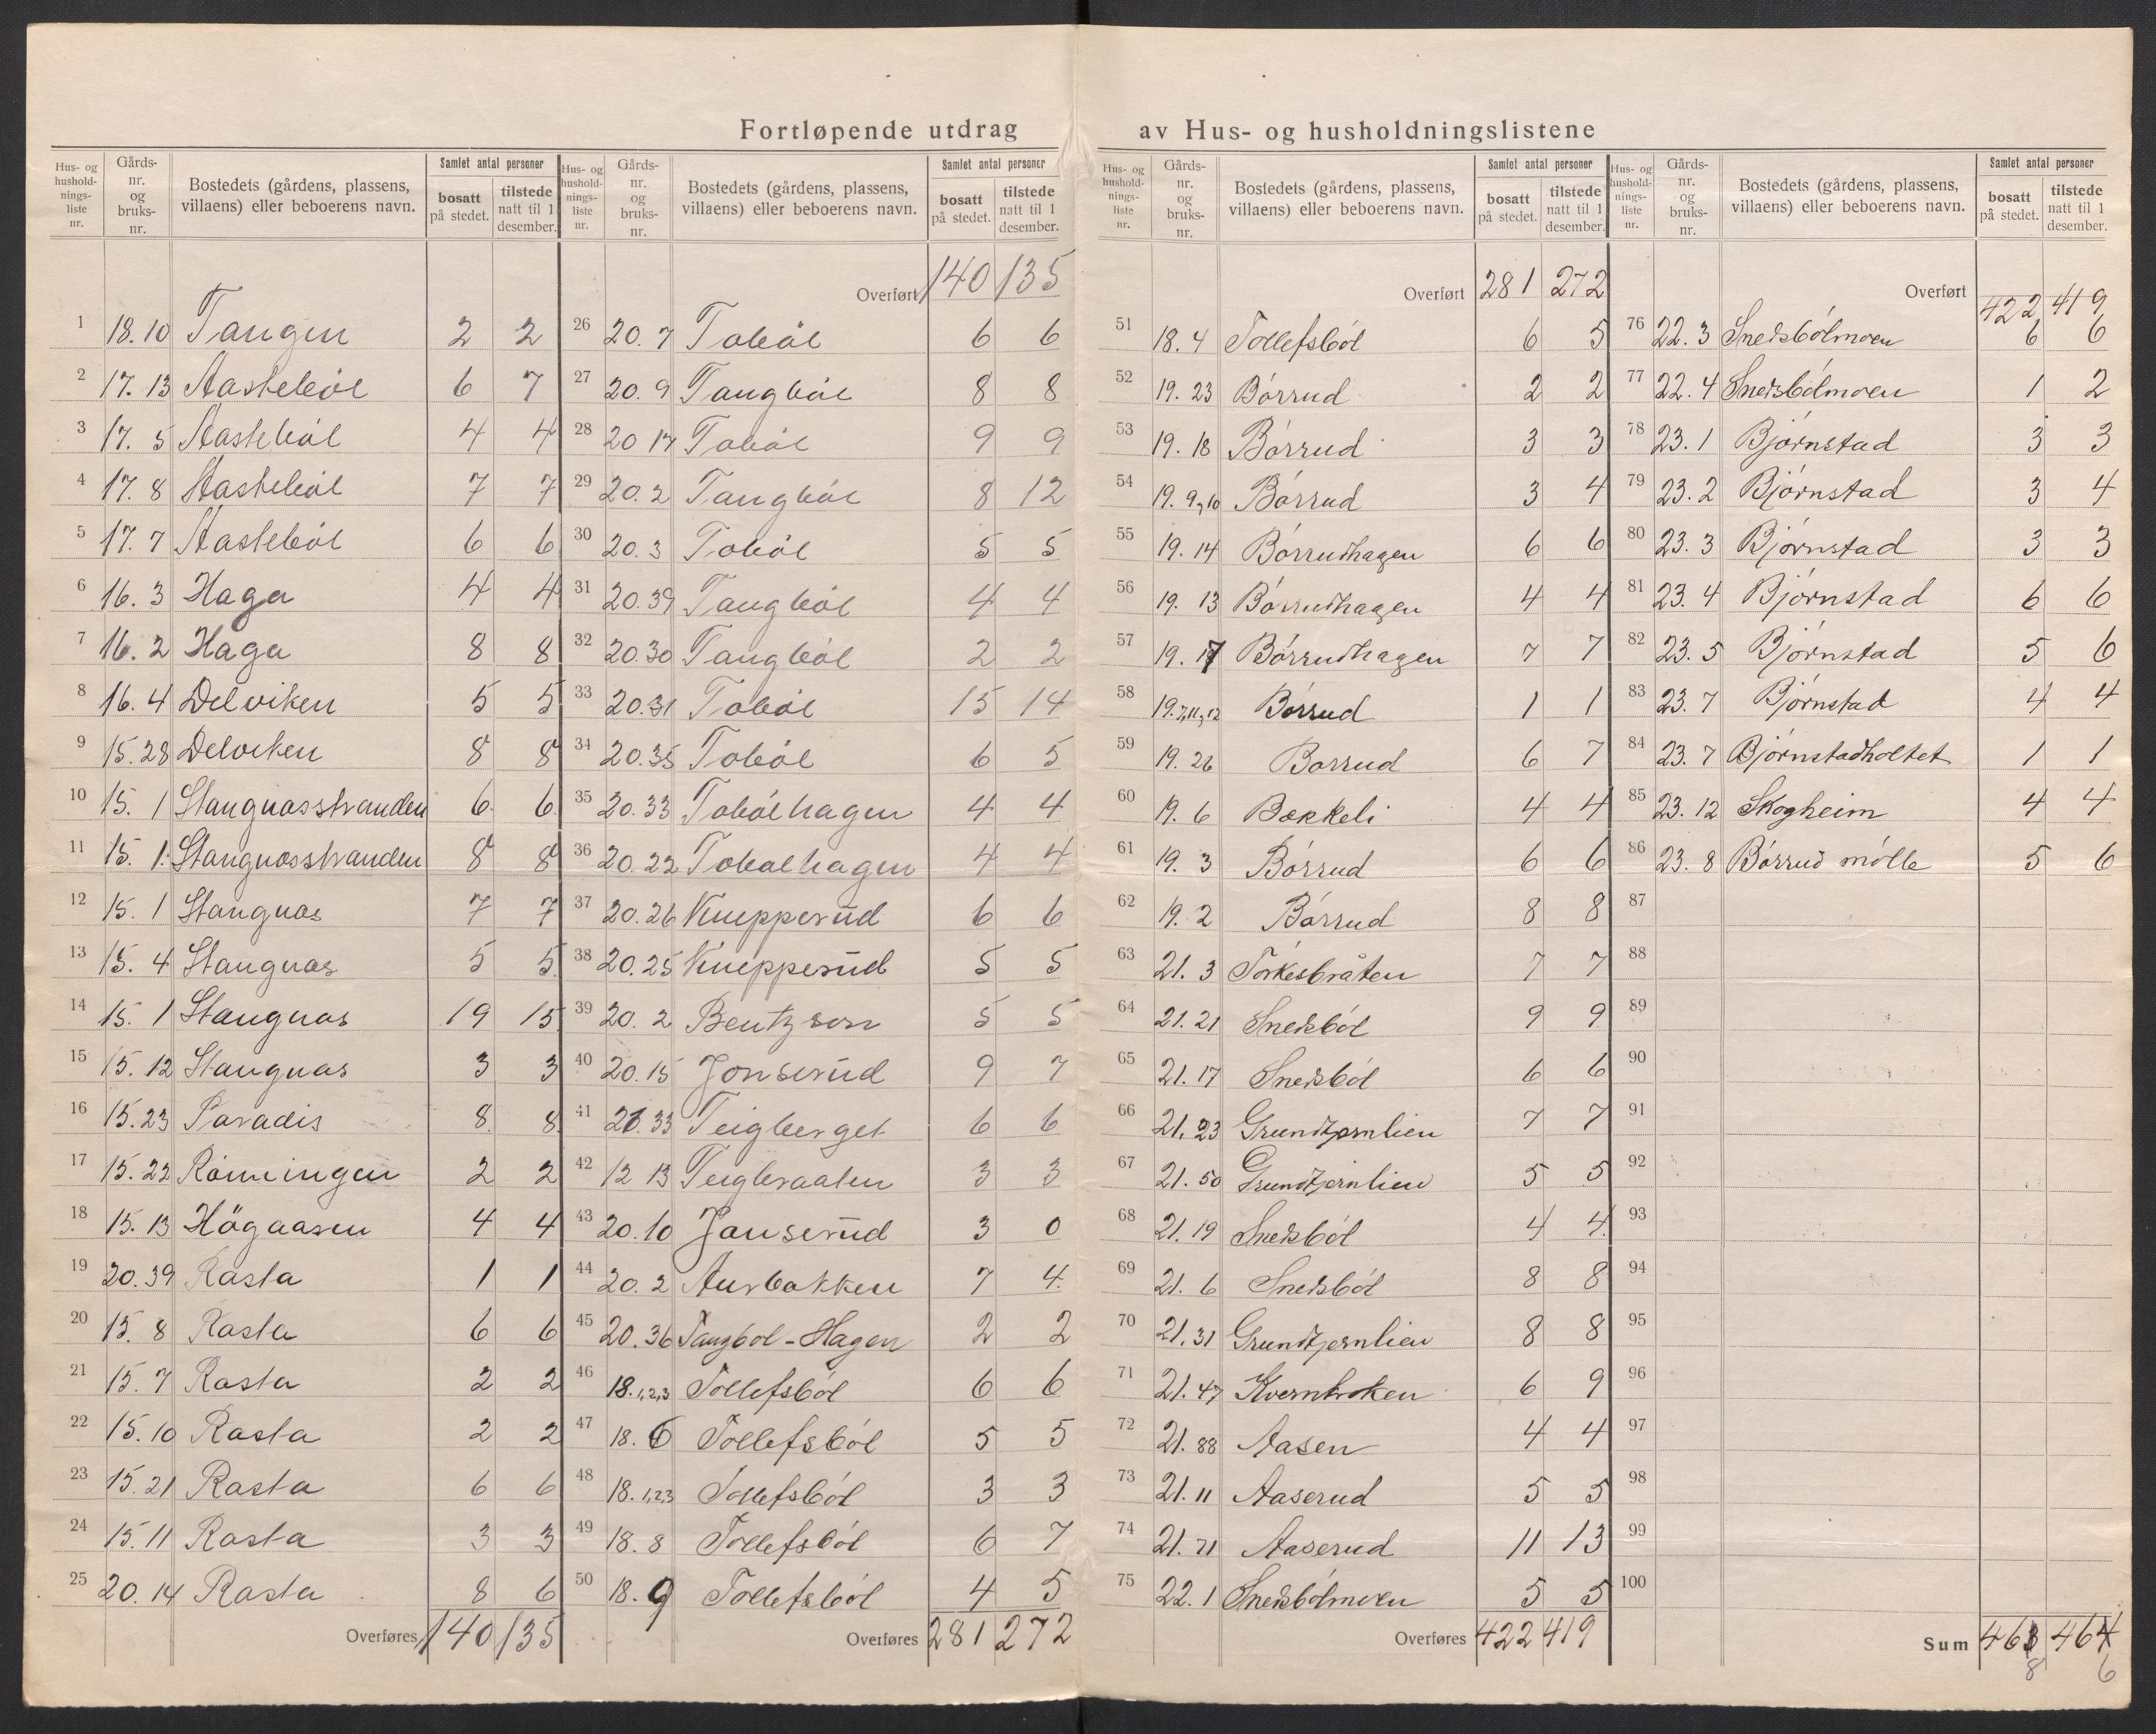 Fortløpende utdrag av Hus- og husholdningslistene
Hus- og husholdningsliste nr. | Gårds- nr. og bruks- nr. | Bostedets (gårdens, plassens, villaens) eller beboerens navn. | Samlet antal personer bosatt på stedet. | tilstede natt til 1 desember.
1 18.10 Tangen 2 2
2 17.13 Aastebøl 6 7
3 17.5 Aastebøl 4 4
4 17.8 Aastebøl 7 7
5 17.7 Aastebøl 6 6
6 16.3 Haga 4 4
7 16.2 Haga 8 8
8 16.4 Delviken 5 5
9 15.28 Delviken 8 8
10 15.1 Stangnosstranden 6 6
11 15.1 Stangnosstranden 8 8
12 15.1 Stangnos 7 7
13 15.4 Stangnos 5 5
14 15.1 Stangnos 19 15
15 15.12 Stangnos 3 3
16 15.23 Paradis 8 8
17 15.22 Rømmingen 2 2
18 15.13 Högaasen 4 4
19 20.39 Rasta 1 1
20 15.8 Rasta 6 6
21 15.7 Rasta 2 2
22 15.10 Rasta 2 2
23 15.21 Rasta 6 6
24 15.11 Rasta 3 3
25 20.14 Rasta 8 6
Overføres 140 135
Hus- og husholdningsliste nr. | Gårds- nr. og bruks- nr. | Bostedets (gårdens, plassens, villaens) eller beboerens navn. | Samlet antal personer bosatt på stedet. | tilstede natt til 1 desember.
Overført 140 135
26 20.7 Tobøl 6 6
27 20.9 Tangbøl 8 8
28 20 17 Tobøl 9 9
29 20.2 Tangbøl 8 12
30 20.3 Tobøl 5 5
31 20.39 Tangbøl 4 4
32 20.30 Tangbøl 2 2
33 20.31 Tobøl 15 14
34 20.35 Tobøl 6 5
35 20.33 Tobølhagen 4 4
36 20.22 Tobølhagen 4 4
37 20.26 Knepperud 6 6
38 20.25 Knepperud 5 5
39 20.2 Bentzson 5 5
40 20.15 Jonserud 9 7
41 21.33 Teigberget 6 6
42 12 13 Teigbraaten 3 3
43 20.10 Janserud 3 0
44 20.2 Aurbakken 7 4
45 20.36 Tangbøl-Hagen 2 2
46 18.1,2,3 Tollefsbøl 6 6
47 18.6 Tollefsbøl 5 5
48 18.1,2,3 Tollefsbøl 3 3
49 18.8 Tollefsbøl 6 7
50 18.9 Tollefsbøl 4 5
Overføres 281 272
Hus- og husholdningsliste nr. | Gårds- nr. og bruks- nr. | Bostedets (gårdens, plassens, villaens) eller beboerens navn. | Samlet antal personer bosatt på stedet. | tilstede natt til 1 desember.
Overført 281 272
51 18.4 Tollefsbøl 6 5
52 19.23 Børrud 2 2
53 19.18 Børrud 3 3
54 19.9,10 Børrud 3 4
55 19.14 Børrudhagen 6 6
56 19.13 Børrudhagen 4 4
57 19.17 Børrudhagen 7 7
58 19.7,11,12 Børrud 1 1
59 19.26 Borrud 6 7
60 19.6 Bækkeli 4 4
61 19.3 Børrud 6 6
62 19.2 Børrud 8 8
63 21.3 Torkesbråten 7 7
64 21.21 Snedsbøl 9 9
65 21.17 Snedsbøl 6 6
66 21.23 Grundtjernlien 7 7
67 21.50 Grundtjernlien 5 5
68 21.19 Snedsbøl 4 4
69 21.6 Snedsbøl 8 8
70 21.31 Grundtjernlien 8 8
71 21.47 Kvernkroken 6 9
72 21.88 Aasen 4 4
73 21.11 Aaserud 5 5
74 21.71 Aaserud 11 13
75 22.1 Snedsbølmoen 5 5
Overføres 422 419
Hus- og husholdningsliste nr. | Gårds- nr. og bruks- nr. | Bostedets (gårdens, plassens, villaens) eller beboerens navn. | Samlet antal personer bosatt på stedet. | tilstede natt til 1 desember.
Overført 422 419
76 22.3 Snedsbølmoen 6 6
77 22.4 Snedsbølmoen 1 2
78 23.1 Bjørnstad 3 3
79 23.2 Bjørnstad 3 4
80 23.3 Bjørnstad 3 3
81 23.4 Bjørnstad 6 6
82 23.5 Bjørnstad 5 6
83 23.7 Bjørnstad 4 4
84 23.7 Bjørnstadholtet 1 1
85 23.12 Skogheim 4 4
86 23.8 Børrud mølle 5 6
87
88
89
90
91
92
93
94
95
96
97
98
99
100
Sum 463 464
8 6